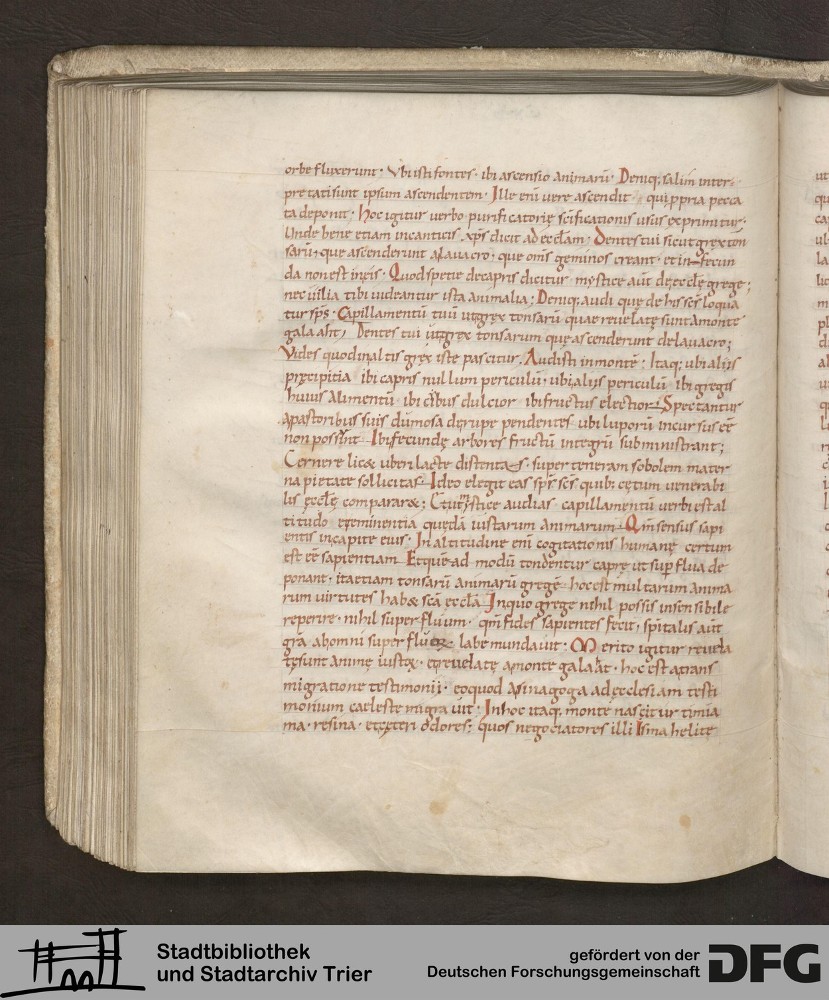 orbe fluxerunt · Ubi isti fontes · ibi ascensio animarū · Deniq; salim inter
pretati sunt ipsum ascendentem · Ille eni vere ascendit qui ppria pecca
ta deponit · hoc igitur verbo purificatorię scificationis usus exprimitur ·
Unde bene etiam in canticis xps dicit ad eccłam · Dentes tui sicut grex ton
sarū · que ascenderunt a lavacro · que oms geminos creant · et infecun
da non est in eis · Quod specie de capris dicitur · mystice aūt de ęcclę grege ;
nec vilia tibi videantur ista animalia ; Deniq; audi quę de his scs loqua
tur sps · Capillamentū tuū ut grex tonsarū quae revelatę sunt a monte
galaaht / Dentes tui ut grex tonsarum quę ascenderunt de lavacro ;
Vides quod in altis grex iste pascitur · Audisti in monte · Itaq; ubi aliis
pręcipitia ibi capris nullum periculū · ubi aliis periculū ibi gregis
huius alimentū · ibi cibus dulcior ibi fructus electior · Spectantur
a pastoribus suis dumosa de rupe pendentes ubi luporū incursus eē
non possunt · Ibi fecundę arbores fructū integrū subministrant ;
Cernere lic& uberi lacte distentas · super teneram sobolem mater
na pietate sollicitas · Ideo elegit eas sps scs quib; cętum venerabi
lis ęcclę comparar& ;
titudo et eminentia quędā iustarum animarum · Qm sensus sapi
entis in capite eius · In altitudine eni cogitationis humanę certum
est eē sapientiam · Et quēad modū tondentur caprę ut supflua de
ponant · ita etiam tonsarū animarū gregē hoc est multarum anima
rum virtutes hab& scā ęccła · In quo grege nihil possis insensibile
reperire · nihil superfluum · qm fides sapientes fecit · spitalis aūt
grā ab omni labe mundavit · Merito igitur revela
tę sunt animę · et revelatę a monte galaat · hoc est a trans
migratione testimonii · eo quod a sinagoga ad ęcclesiam testi
monium caeleste migravit · In hoc itaq; monte nascitur timia
ma · resina · et cęteri odores ; quos negociatores illi Ismahelitę
Stadtbibliothek
und Stadtarchiv Trier
gefördert von der
Deutschen Forschungsgemeinschaft
DFG